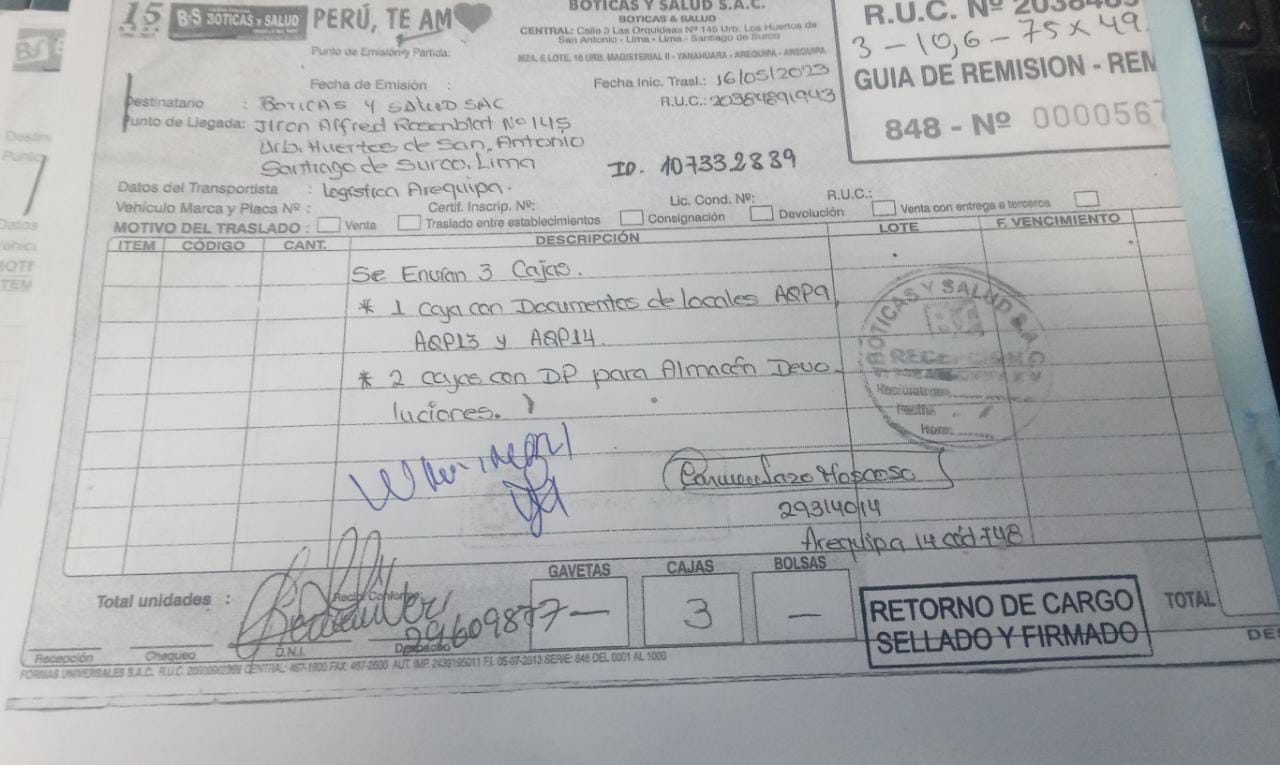 15 B·S BOTICAS Y SALUD PERÚ, TE AM
BOTICAS Y SALUD S.A.C.
BOTICAS & SALUD
CENTRAL: Calle 3 Las Orquideas Nº 145 Urb. Los Huertos de
San Antonio - Lima - Lima - Santiago de Surco
Punto de Emisión y Partida:
MZA. E LOTE. 10 URB. MAGISTERIAL II - YANAHUARA - AREQUIPA - AREQUIPA
R.U.C. Nº
3 - 10,6 - 75 x 49
GUIA DE REMISION - REM
848 - Nº 0000567
Fecha de Emisión :
Fecha Inic. Trasl.: 16/05/2023
Destinatario : Boticas y Salud SAC
R.U.C.: 20384891943
Punto de Llegada: Jiron Alfred Rosenblat Nº 145
Urb. Huertos de San, Antonio
Santiago de Surco. Lima
ID. 107332889
Datos del Transportista : Logística Arequipa.
Vehículo Marca y Placa Nº : Certif. Inscrip. Nº: Lic. Cond. Nº: R.U.C.:
MOTIVO DEL TRASLADO : Venta Traslado entre establecimientos Consignación Devolución Venta con entrega a terceros
ITEM CÓDIGO CANT. DESCRIPCIÓN LOTE F. VENCIMIENTO
Se Envían 3 Cajas.
* 1 Caja con Documentos de locales AQP9,
AQP13 y AQP14.
* 2 cajas con DP para Almacén Devo
luciones.
BOTICAS Y SALUD S.A.
Fecha
Hora:
Carmen Lazo Moscoso
29314014
Arequipa 14 cód 748
GAVETAS CAJAS BOLSAS
— 3 —
Total unidades :
Recibí Conforme
29609877
RETORNO DE CARGO
SELLADO Y FIRMADO
TOTAL
Recepción Chequeo D.N.I. Despacho
FORMAS UNIVERSALES S.A.C. CENTRAL: 467-1900 FAX: 467-2600 AUT. IMP. 2439195011 F.I. 05-07-2013 SERIE: 848 DEL 0001 AL 1000